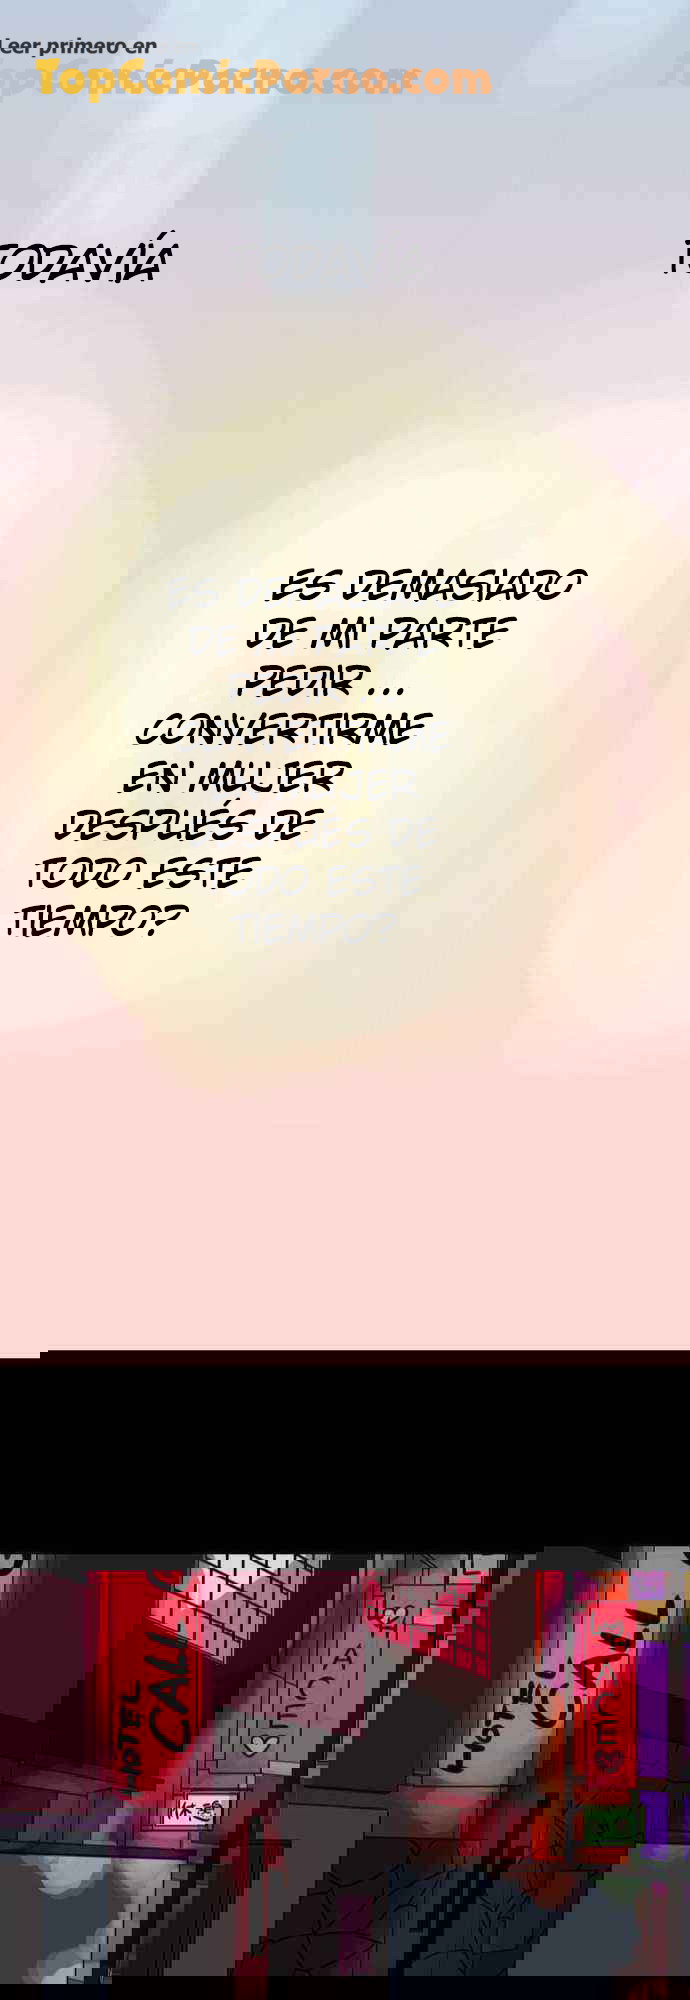 Leer primero en
TopComicPorno.com
TODAVÍA
ES DEMASIADO
DE MI PARTE
PEDIR...
CONVERTIRME
EN MUJER
DESPUÉS DE
TODO ESTE
TIEMPO?
HOTEL
CALL
HOTEL